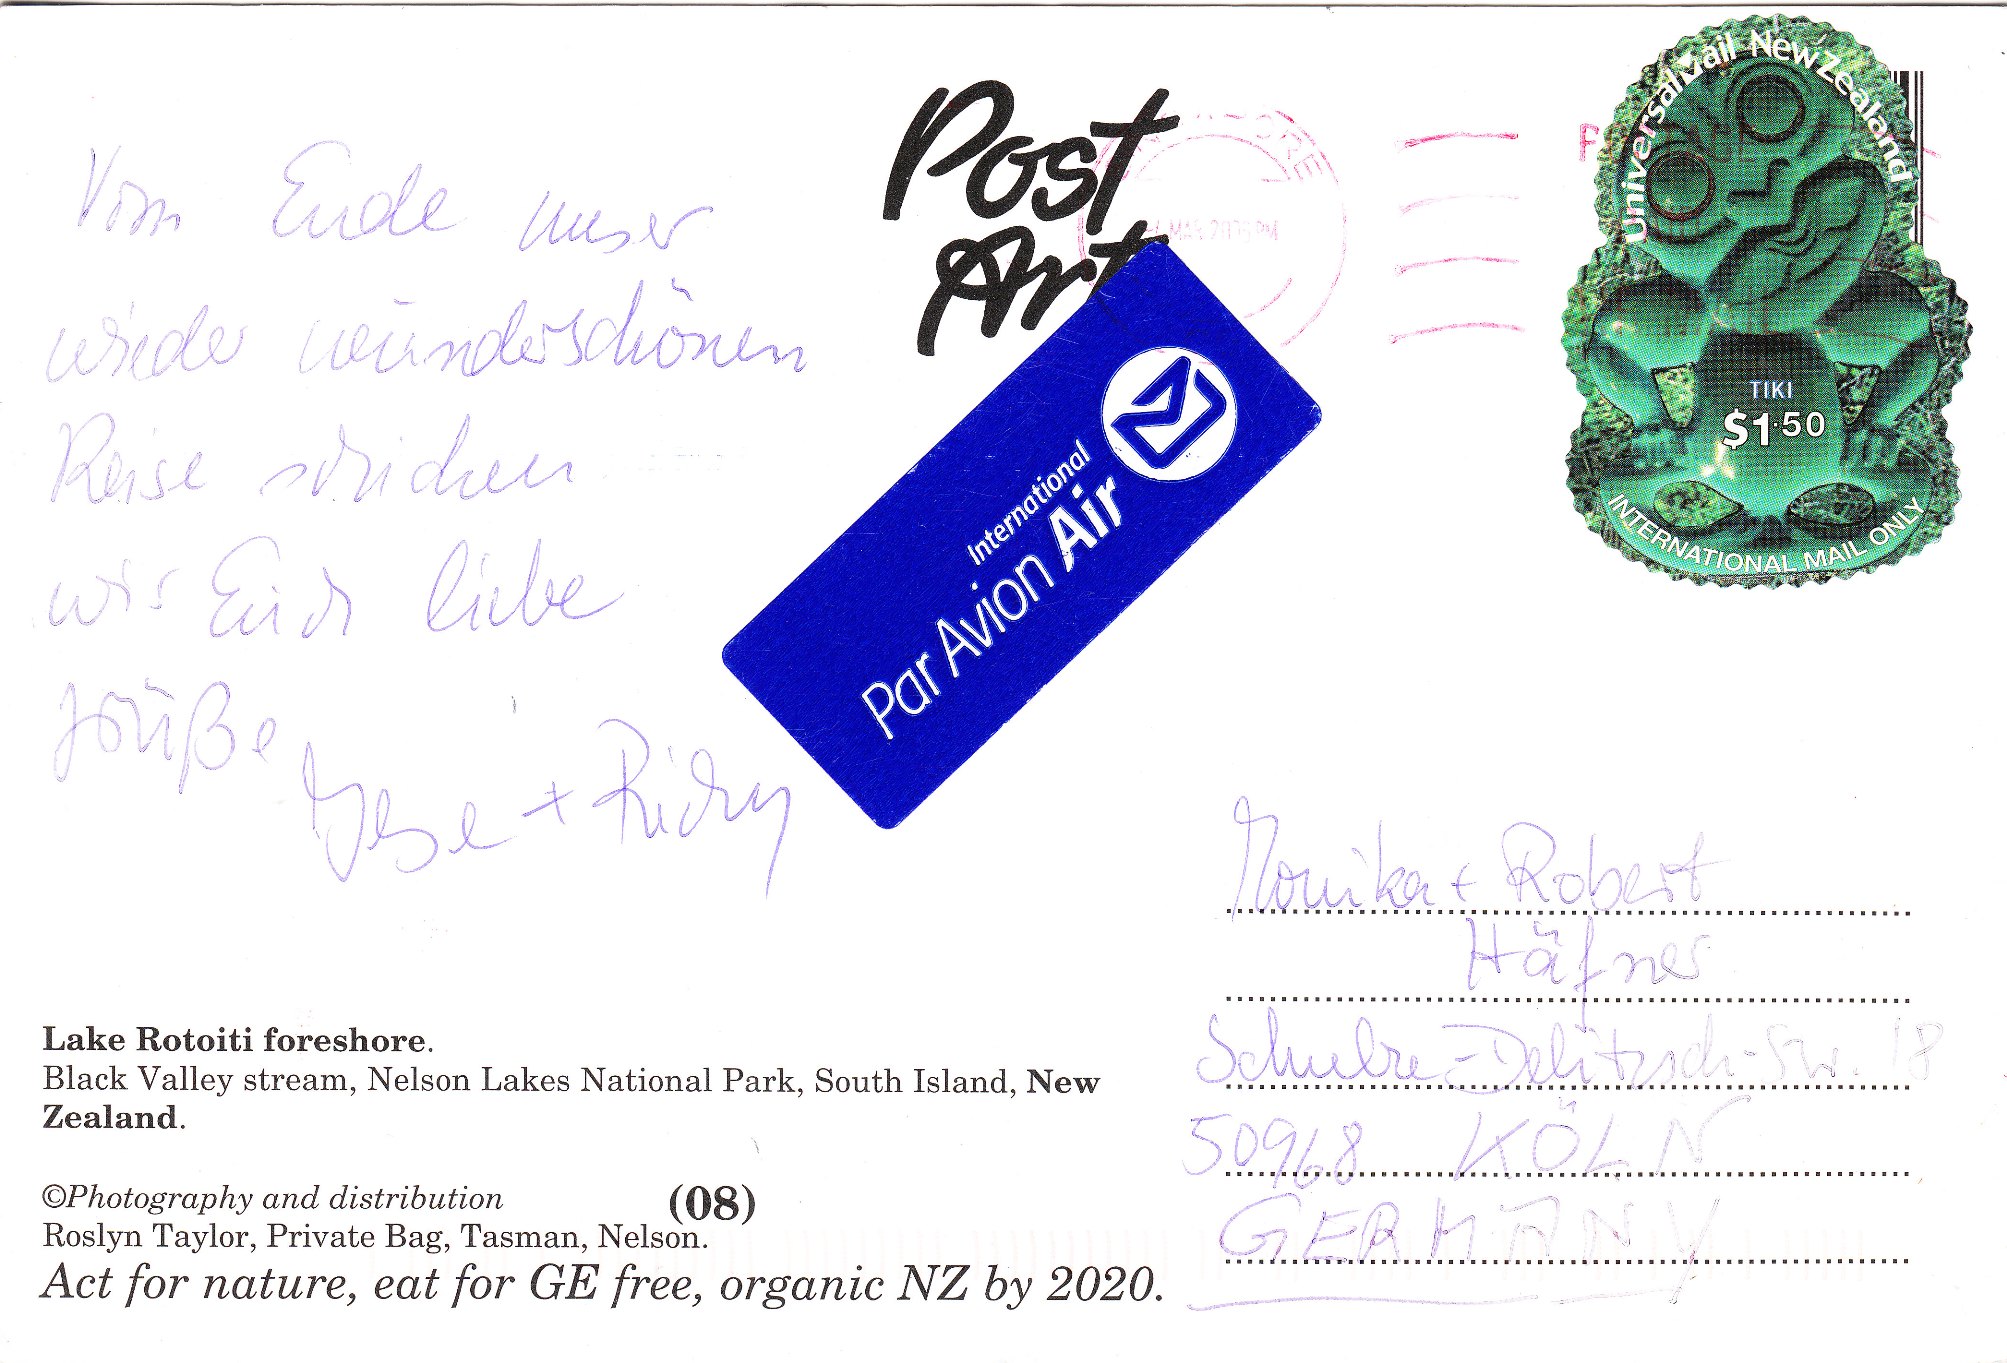 Vom Ende unser
wieder wunderschönen
Reise schicken
wir Euch liebe
Grüße
+ Ricky
Post
Art
International
Par Avion Air
UniversalMail NewZealand
TIKI
$1.50
INTERNATIONAL MAIL ONLY
Monika + Robert
Häfner
Schulze-Delitzsch-Str. 18
50968 KÖLN
GERMANY
Lake Rotoiti foreshore.
Black Valley stream, Nelson Lakes National Park, South Island, New
Zealand.
©Photography and distribution (08)
Roslyn Taylor, Private Bag, Tasman, Nelson.
Act for nature, eat for GE free, organic NZ by 2020.